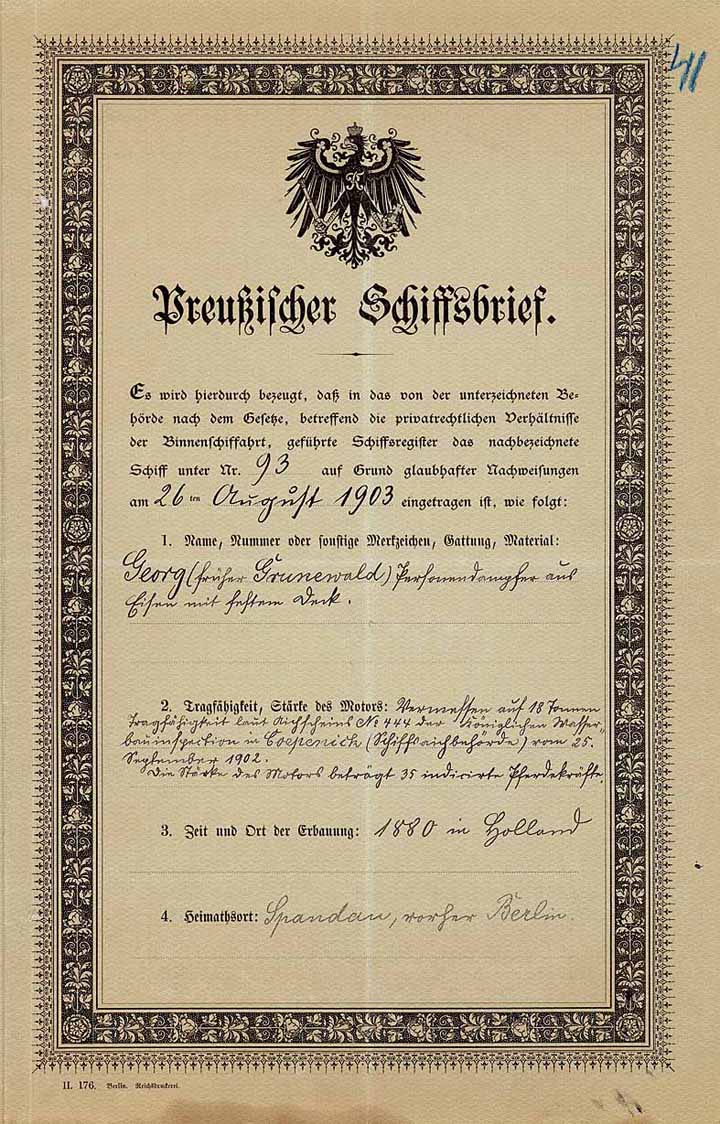 41
Preußischer Schiffsbrief.
Es wird hierdurch bezeugt, daß in das von der unterzeichneten Be-
hörde nach dem Gesetze, betreffend die privatrechtlichen Verhältnisse
der Binnenschiffahrt, geführte Schiffsregister das nachbezeichnete
Schiff unter Nr. 93 auf Grund glaubhafter Nachweisungen
am 26ten August 1903 eingetragen ist, wie folgt:
1. Name, Nummer oder sonstige Merkzeichen, Gattung, Material:
Georg (früher Grunewald) Personendampfer aus
Eisen mit festem Deck.
2. Tragfähigkeit, Stärke des Motors: Vermessen auf 18 Tonnen
Tragfähigkeit laut Aichscheins No 444 der Königlichen Wasser-
bauinspection in Coepenick (Schiffsaichbehörde) vom 25.
September 1902.
Die Stärke des Motors beträgt 35 indicirte Pferdekräfte.
3. Zeit und Ort der Erbauung: 1880 in Holland
4. Heimathsort: Spandau, vorher Berlin.
II. 176. Berlin. Reichsdruckerei.